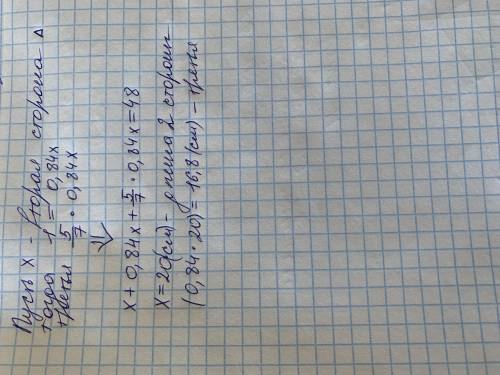 Пусть x - вторая сторона Δ
тогда 1 = 0,84x
третья 5/7 · 0,84x
⇓
x + 0,84x + 5/7 · 0,84x = 48
x = 20(см) - длина 2 стороны
(0,84 · 20) = 16,8(см) - третья